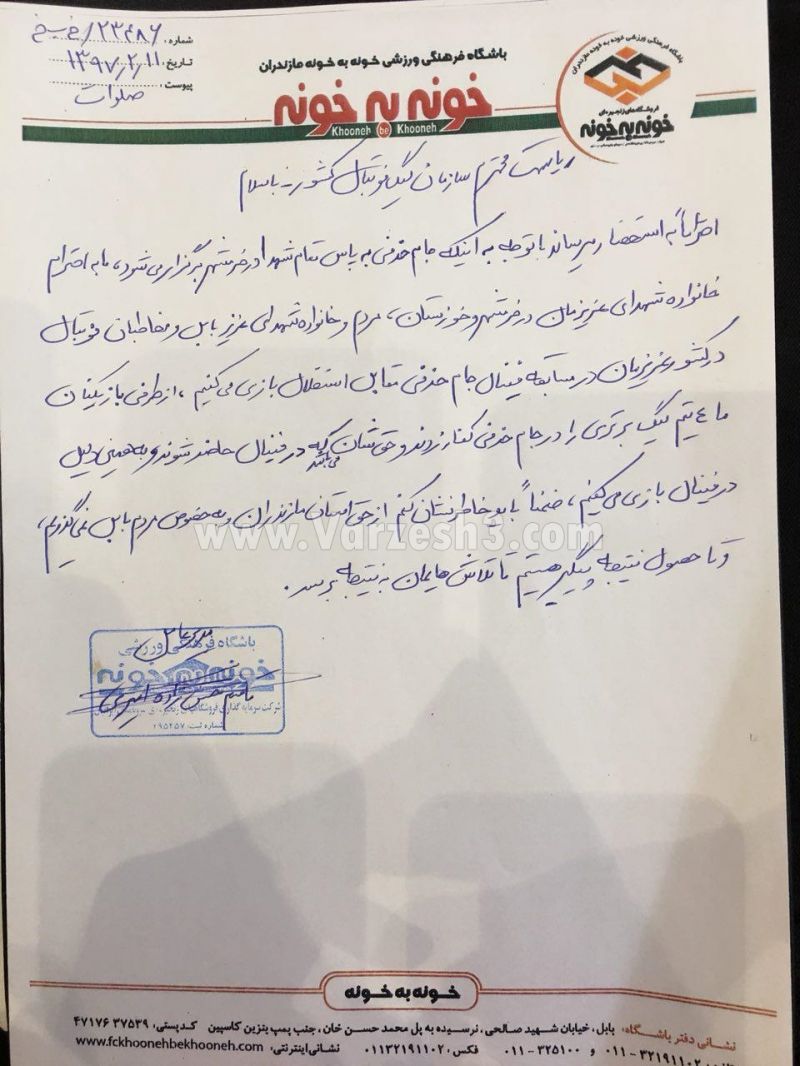 شماره: ۲۳۴۸۶/خ‌س‌خ
تاریخ: ۱۳۹۷/۲/۱۱
پیوست: صلوات
باشگاه فرهنگی ورزشی خونه به خونه مازندران
خونه به خونه
Khooneh be Khooneh
باشگاه فرهنگی ورزشی خونه به خونه مازندران
فروشگاه‌های زنجیره‌ای
خونه به خونه
ریاست محترم سازمان لیگ فوتبال کشور - با سلام
احتراماً به استحضار میرساند با توجه به اینکه جام حذفی به پاس مقام شهدا در خرمشهر برگزار می شود، ما به احترام
خانواده شهدای عزیزمان در خرمشهر و خوزستان، مردم و خانواده شهدای عزیز بابل و مخاطبان فوتبال
در کشور عزیزمان در مسابقه فینال جام حذفی مقابل استقلال بازی می کنیم، از طرفی بازیکنان
ما ٤ تیم لیگ برتری را در جام حذفی کنار زدند و حق شان می باشد که در فینال حاضر شوند و به همین دلیل
در فینال بازی می کنیم، ضمناً باید خاطر نشان کنم از حق استان مازندران و به خصوص مردم بابل نمی گذریم،
و تا حصول نتیجه پیگیر هستیم تا تلاش هایمان به نتیجه برسد.
www.Varzesh3.com
مدیر عامل
باشگاه فرهنگی ورزشی
خونه به خونه
شرکت سرمایه گذاری فروشگاههای زنجیره ای
شماره ثبت: ۲۹۵۲۵۷
خونه به خونه
نشانی دفتر باشگاه: بابل، خیابان شهید صالحی، نرسیده به پل محمد حسن خان، جنب پمپ بنزین کاسپین کدپستی: ۴۷۱۷۶۳۷۵۳۹
۰۱۱-۳۲۱۹۱۱۰۲ و ۰۱۱-۳۲۵۱۰۰ فکس: ۰۱۱۳۲۱۹۱۱۰۲ نشانی اینترنتی: www.fckhoonehbekhooneh.com